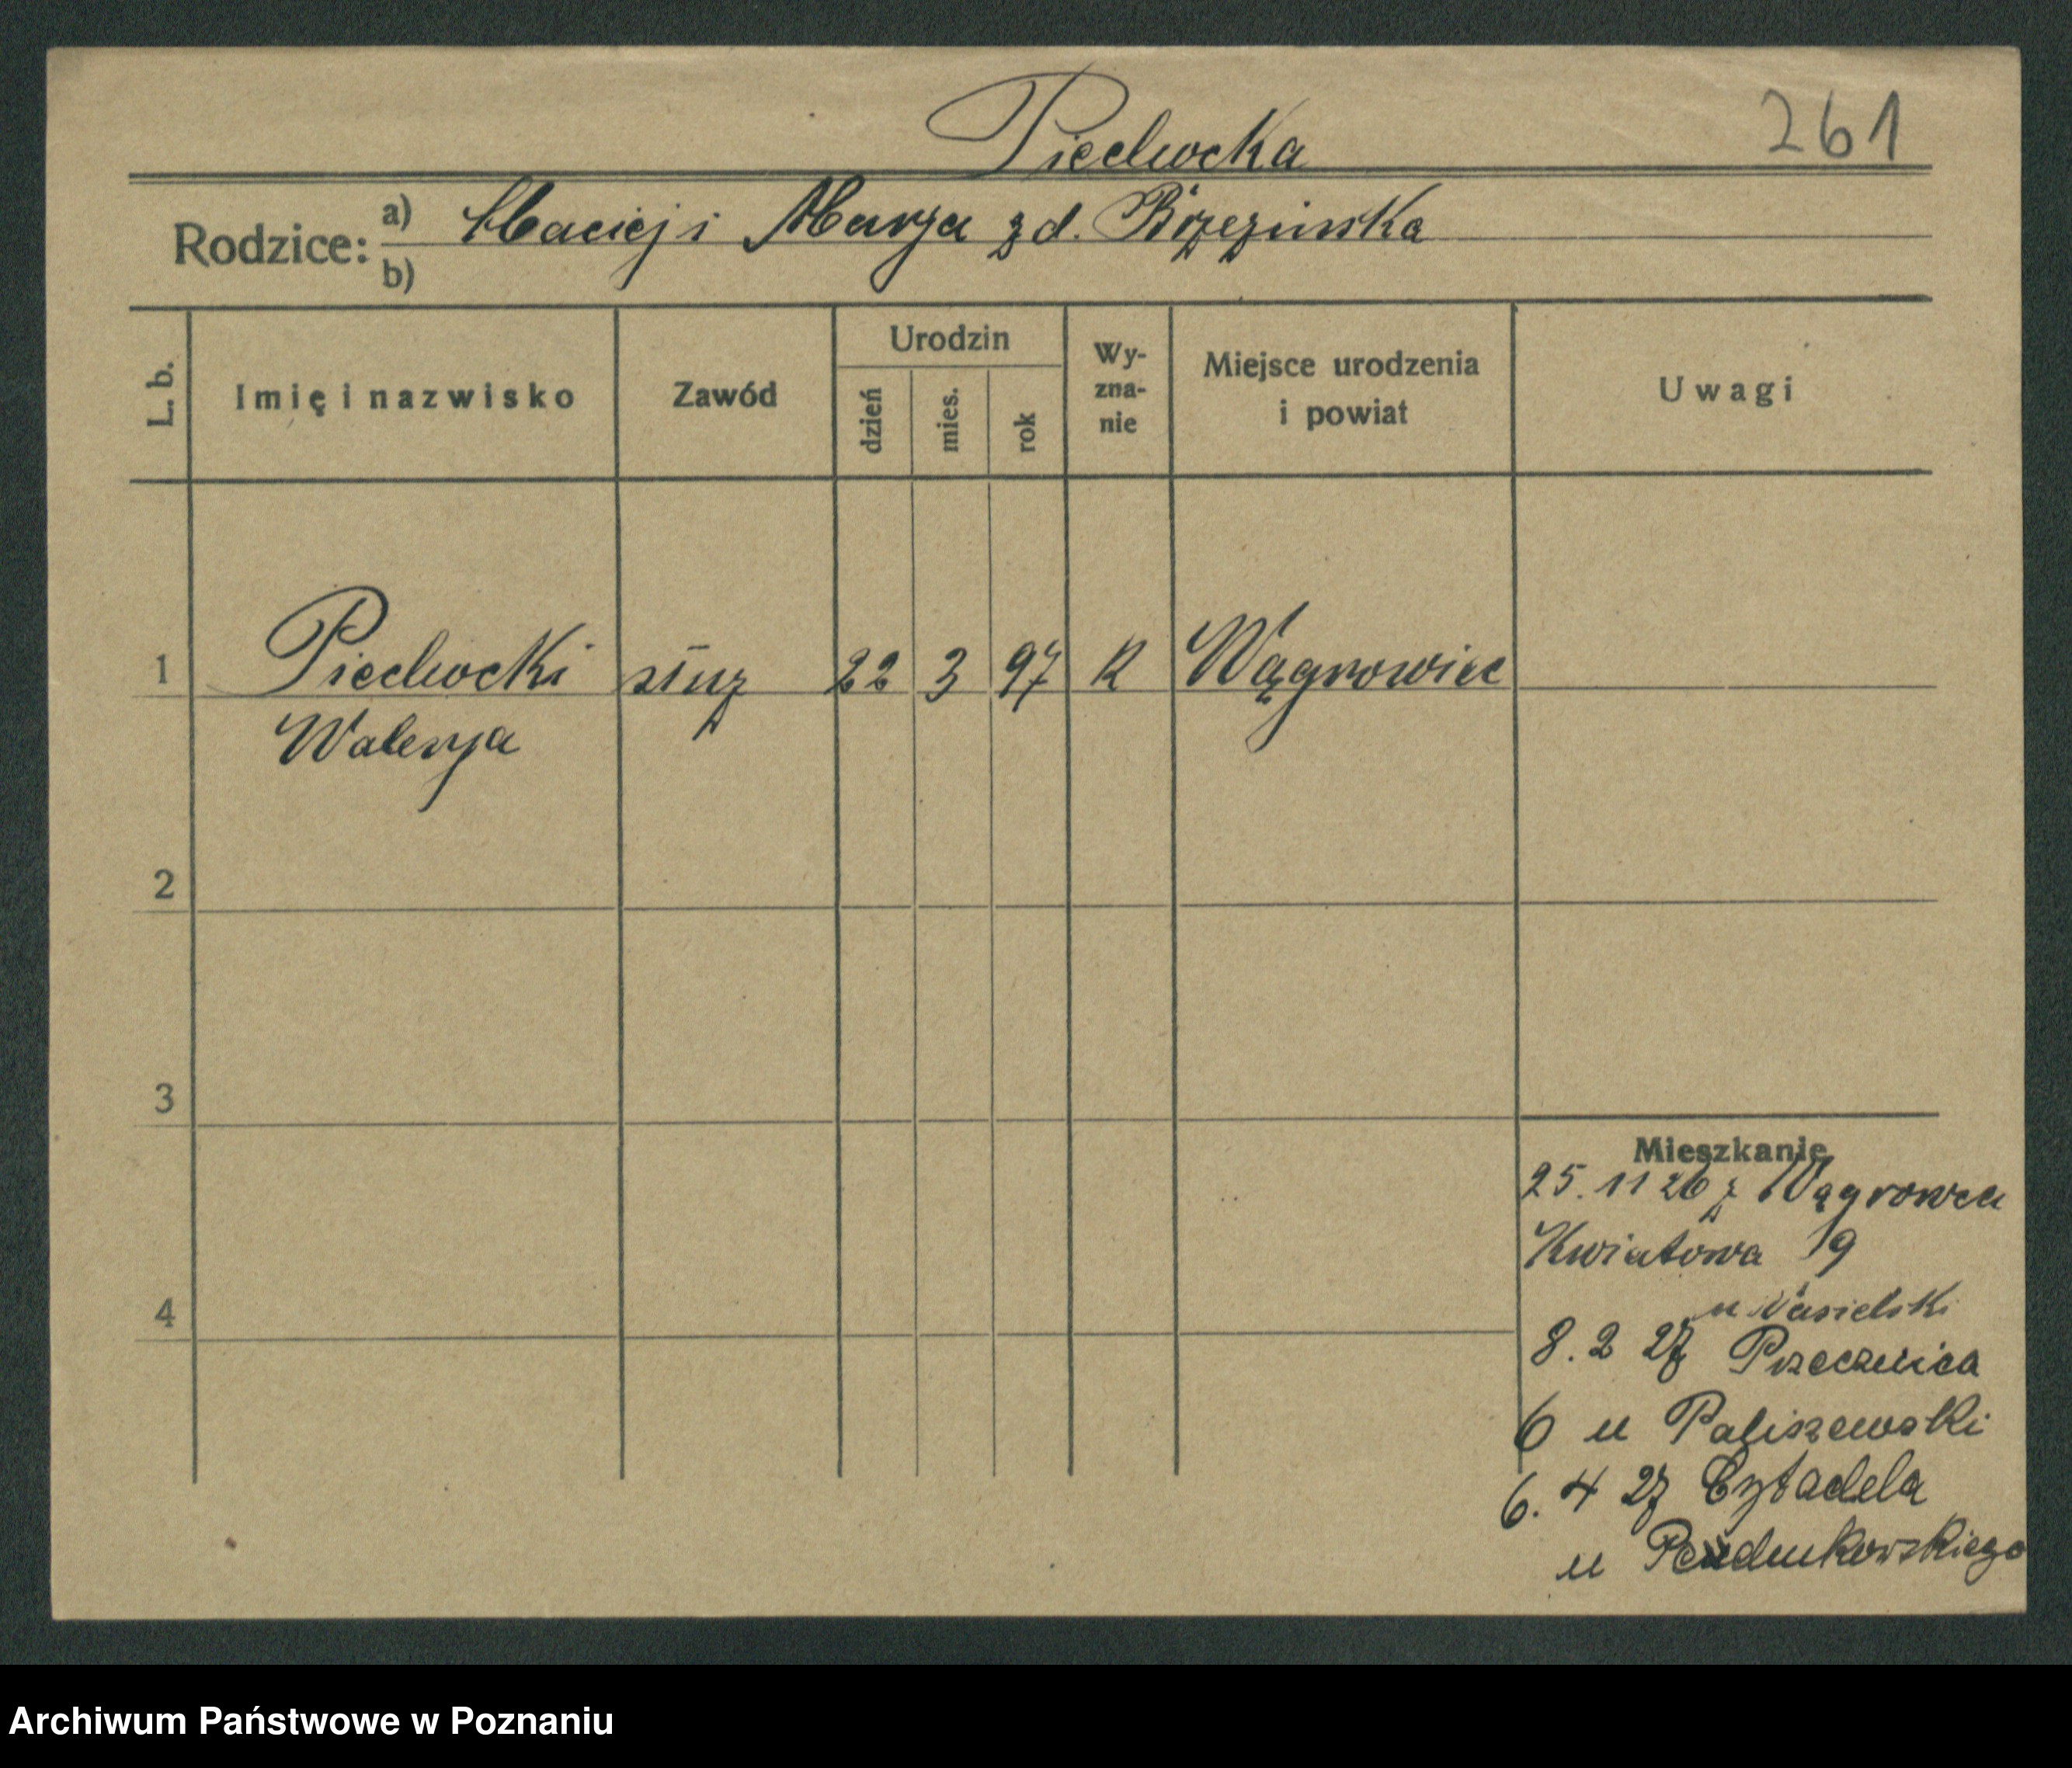 Piechocka
261
Rodzice: a) Maciej i Marja z d. Brzezińska
b)
L. b.
Imię i nazwisko
Zawód
Urodzin
dzień
mies.
rok
Wy-
zna-
nie
Miejsce urodzenia
i powiat
Uwagi
1 Piechocki służ 22 3 97 K Wągrowiec
Walerja
2
3
4
Mieszkanie
25. 11 26 z Wągrowca
Kwiatowa 19
u
8. 2 27 Przecznica
6 u Paliszewski
6. 4 27 Cytadela
u
Archiwum Państwowe w Poznaniu